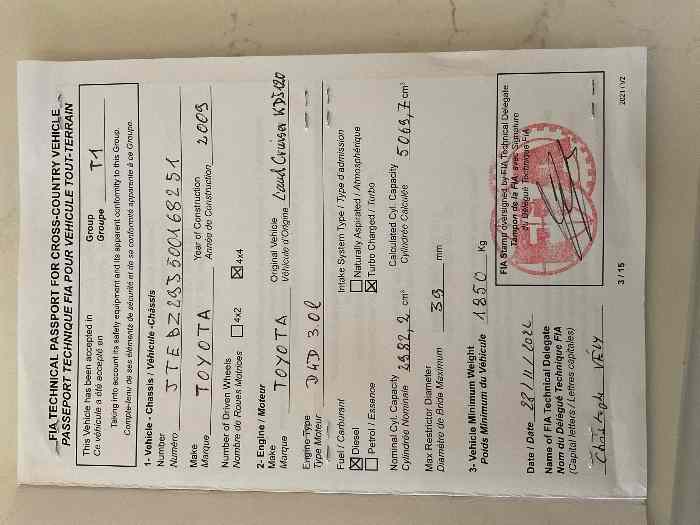 FIA TECHNICAL PASSPORT FOR CROSS-COUNTRY VEHICLE
PASSEPORT TECHNIQUE FIA POUR VEHICULE TOUT-TERRAIN
This Vehicle has been accepted in Group T1
Ce véhicule a été accepté en Groupe
Taking into account its safety equipment and its apparent conformity to this Group.
Compte-tenu de ses éléments de sécurité et de sa conformité apparente à ce Groupe.
1- Vehicle - Chassis / Véhicule -Châssis
Number
Numéro
Make TOYOTA Year of Construction 2009
Marque Année de Construction
Number of Driven Wheels 4x2 4x4
Nombre de Roues Motrices
2- Engine / Moteur
Make TOYOTA Original Vehicle Land Cruiser KDJ120
Marque Véhicule d'Origine
Engine Type D4D 3.0l
Type Moteur
Fuel / Carburant Intake System Type / Type d'admission
Diesel Naturally Aspirated / Atmosphérique
Petrol / Essence Turbo Charged / Turbo
Nominal Cyl. Capacity 2982,2 cm³ Calculated Cyl. Capacity 5069,7 cm³
Cylindrée Nominale Cylindrée Calculée
Max Restrictor Diameter 39 mm
Diamètre de Bride Maximum
3- Vehicle Minimum Weight 1850 Kg
Poids Minimum du Véhicule
FIA Stamp oversigned by FIA Technical Delegate
Tampon de la FIA avec Signature
du Délégué Technique FIA
Date / Date
Name of FIA Technical Delegate
Nom du Délégué Technique FIA
(Capital letters / Lettres capitales)
Christophe
3 / 15
2021 / V2